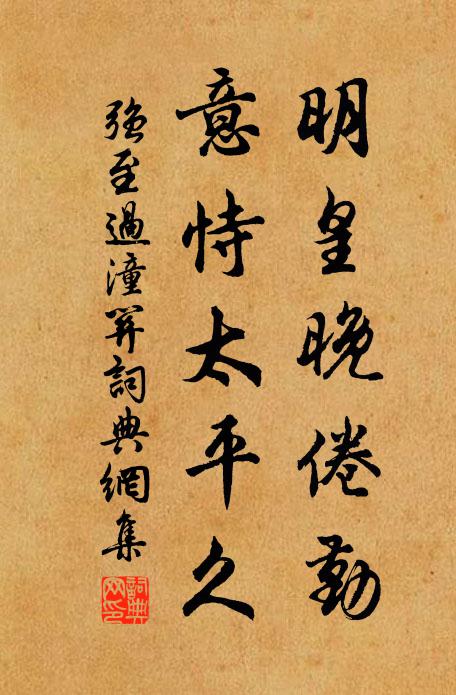 明皇晚倦勤
意恃太平久
強至過潼關詞典網集
詞典網印